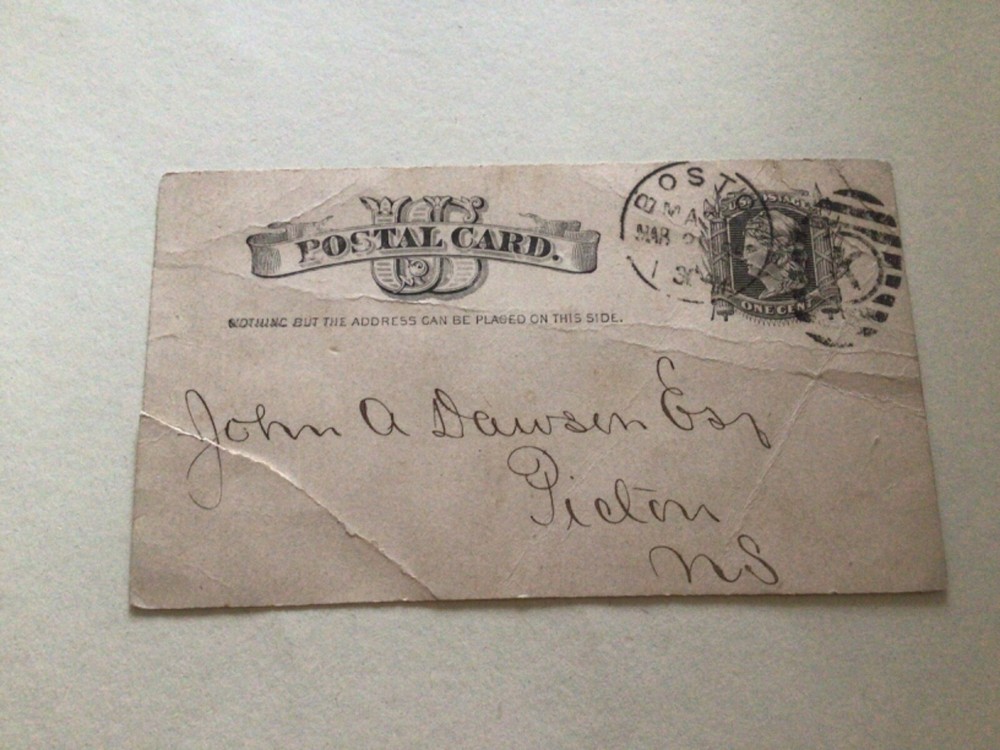 US
POSTAL CARD.
NOTHING BUT THE ADDRESS CAN BE PLACED ON THIS SIDE.
BOST
MAR
POSTAGE
ONE CENT
John A Dawson Esq
Pictou
NS